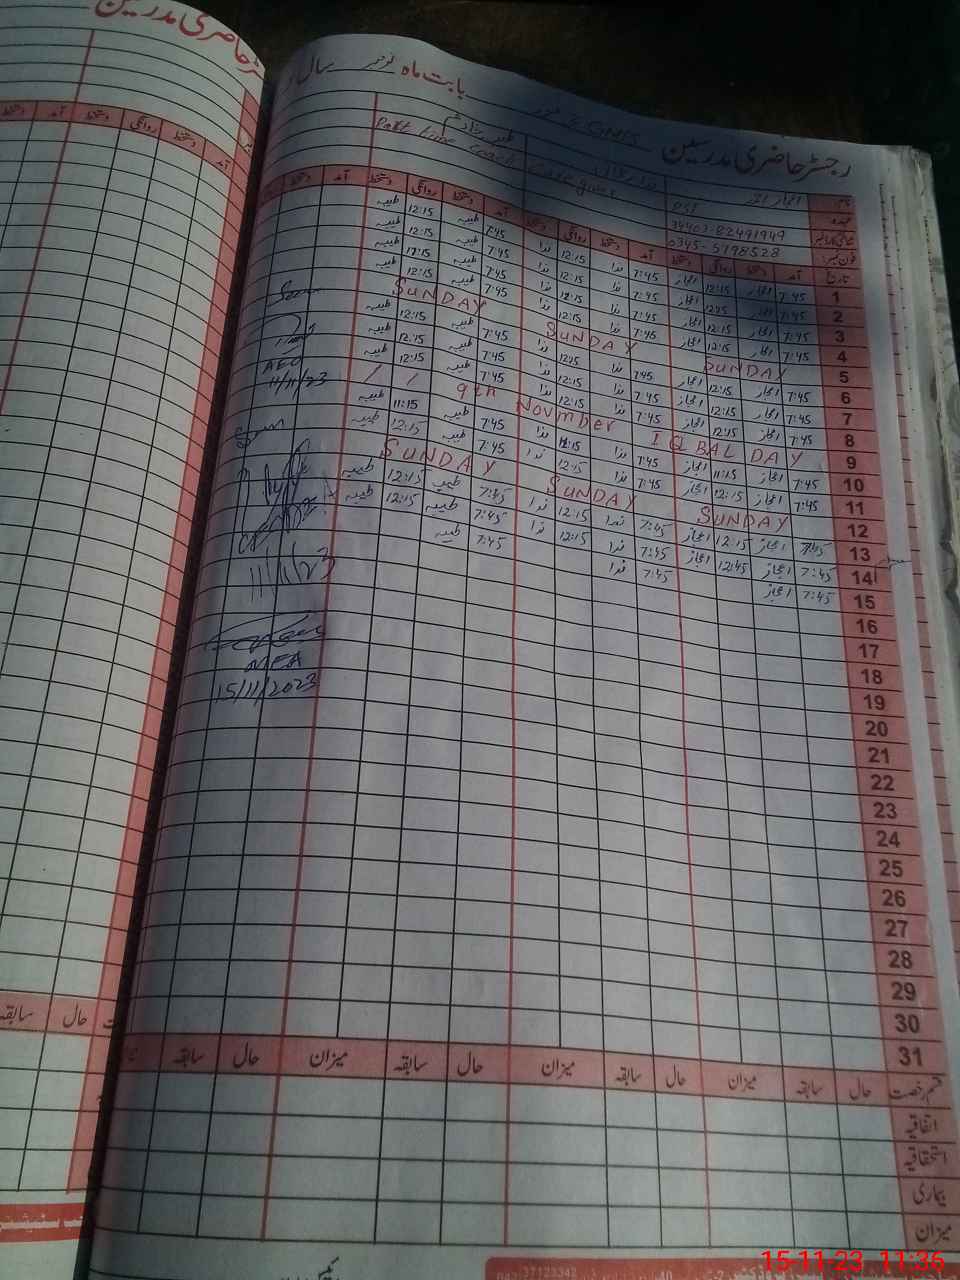 رجسٹر حاضری مدرسین
بابت ماہ نومبر سال
نام
اعجاز احمد
عہدہ
PST
Part time coach
شناختی کارڈ نمبر
34403-82491949
فون نمبر
0345-5798528
تاریخ آمد دستخط روانگی دستخط آمد دستخط روانگی دستخط آمد دستخط روانگی دستخط آمد دستخط
1 7:45 اعجاز 12:15 اعجاز 7:45 ندا 12:15 ندا 7:45 طیبہ 12:15 طیبہ
2 7:45 اعجاز 12:15 اعجاز 7:45 ندا 12:15 ندا 7:45 طیبہ 12:15 طیبہ
3 7:45 اعجاز 12:15 اعجاز 7:45 ندا 12:15 ندا 7:45 طیبہ 12:15 طیبہ
4 7:45 اعجاز 12:15 اعجاز 7:45 ندا 12:15 ندا 7:45 طیبہ 12:15 طیبہ
5 SUNDAY SUNDAY SUNDAY
6 7:45 اعجاز 12:15 اعجاز 7:45 ندا 12:15 ندا 7:45 طیبہ 12:15 طیبہ
7 7:45 اعجاز 12:15 اعجاز 7:45 ندا 12:15 ندا 7:45 طیبہ 12:15 طیبہ
8 7:45 اعجاز 12:15 اعجاز 7:45 ندا 12:15 ندا 7:45 طیبہ 12:15 طیبہ
9 9th Novmber IQBAL DAY
10 7:45 اعجاز 11:15 اعجاز 7:45 ندا 11:15 ندا 7:45 طیبہ 11:15 طیبہ
11 7:45 اعجاز 12:15 اعجاز 7:45 ندا 12:15 ندا 7:45 طیبہ 12:15 طیبہ
12 SUNDAY SUNDAY SUNDAY
13 7:45 اعجاز 12:15 اعجاز 7:45 ندا 12:15 ندا 7:45 طیبہ 12:15 طیبہ
14 7:45 اعجاز 12:45 اعجاز 7:45 ندا 12:15 ندا 7:45 طیبہ 12:15 طیبہ
15 7:45 اعجاز 7:45 ندا 7:45 طیبہ
16
17
18
19
20
21
22
23
24
25
26
27
28
29
30
31
AEO
11/11/23
11/11/23
MEA
15/11/2023
قسم رخصت حال سابقہ میزان حال سابقہ میزان حال سابقہ میزان حال سابقہ
اتفاقیہ
استحقاقیہ
بیماری
میزان
رجسٹر حاضری مدرسین
آمد دستخط روانگی دستخط آمد دستخط
حال سابقہ
37123342
15-11-23 11:36